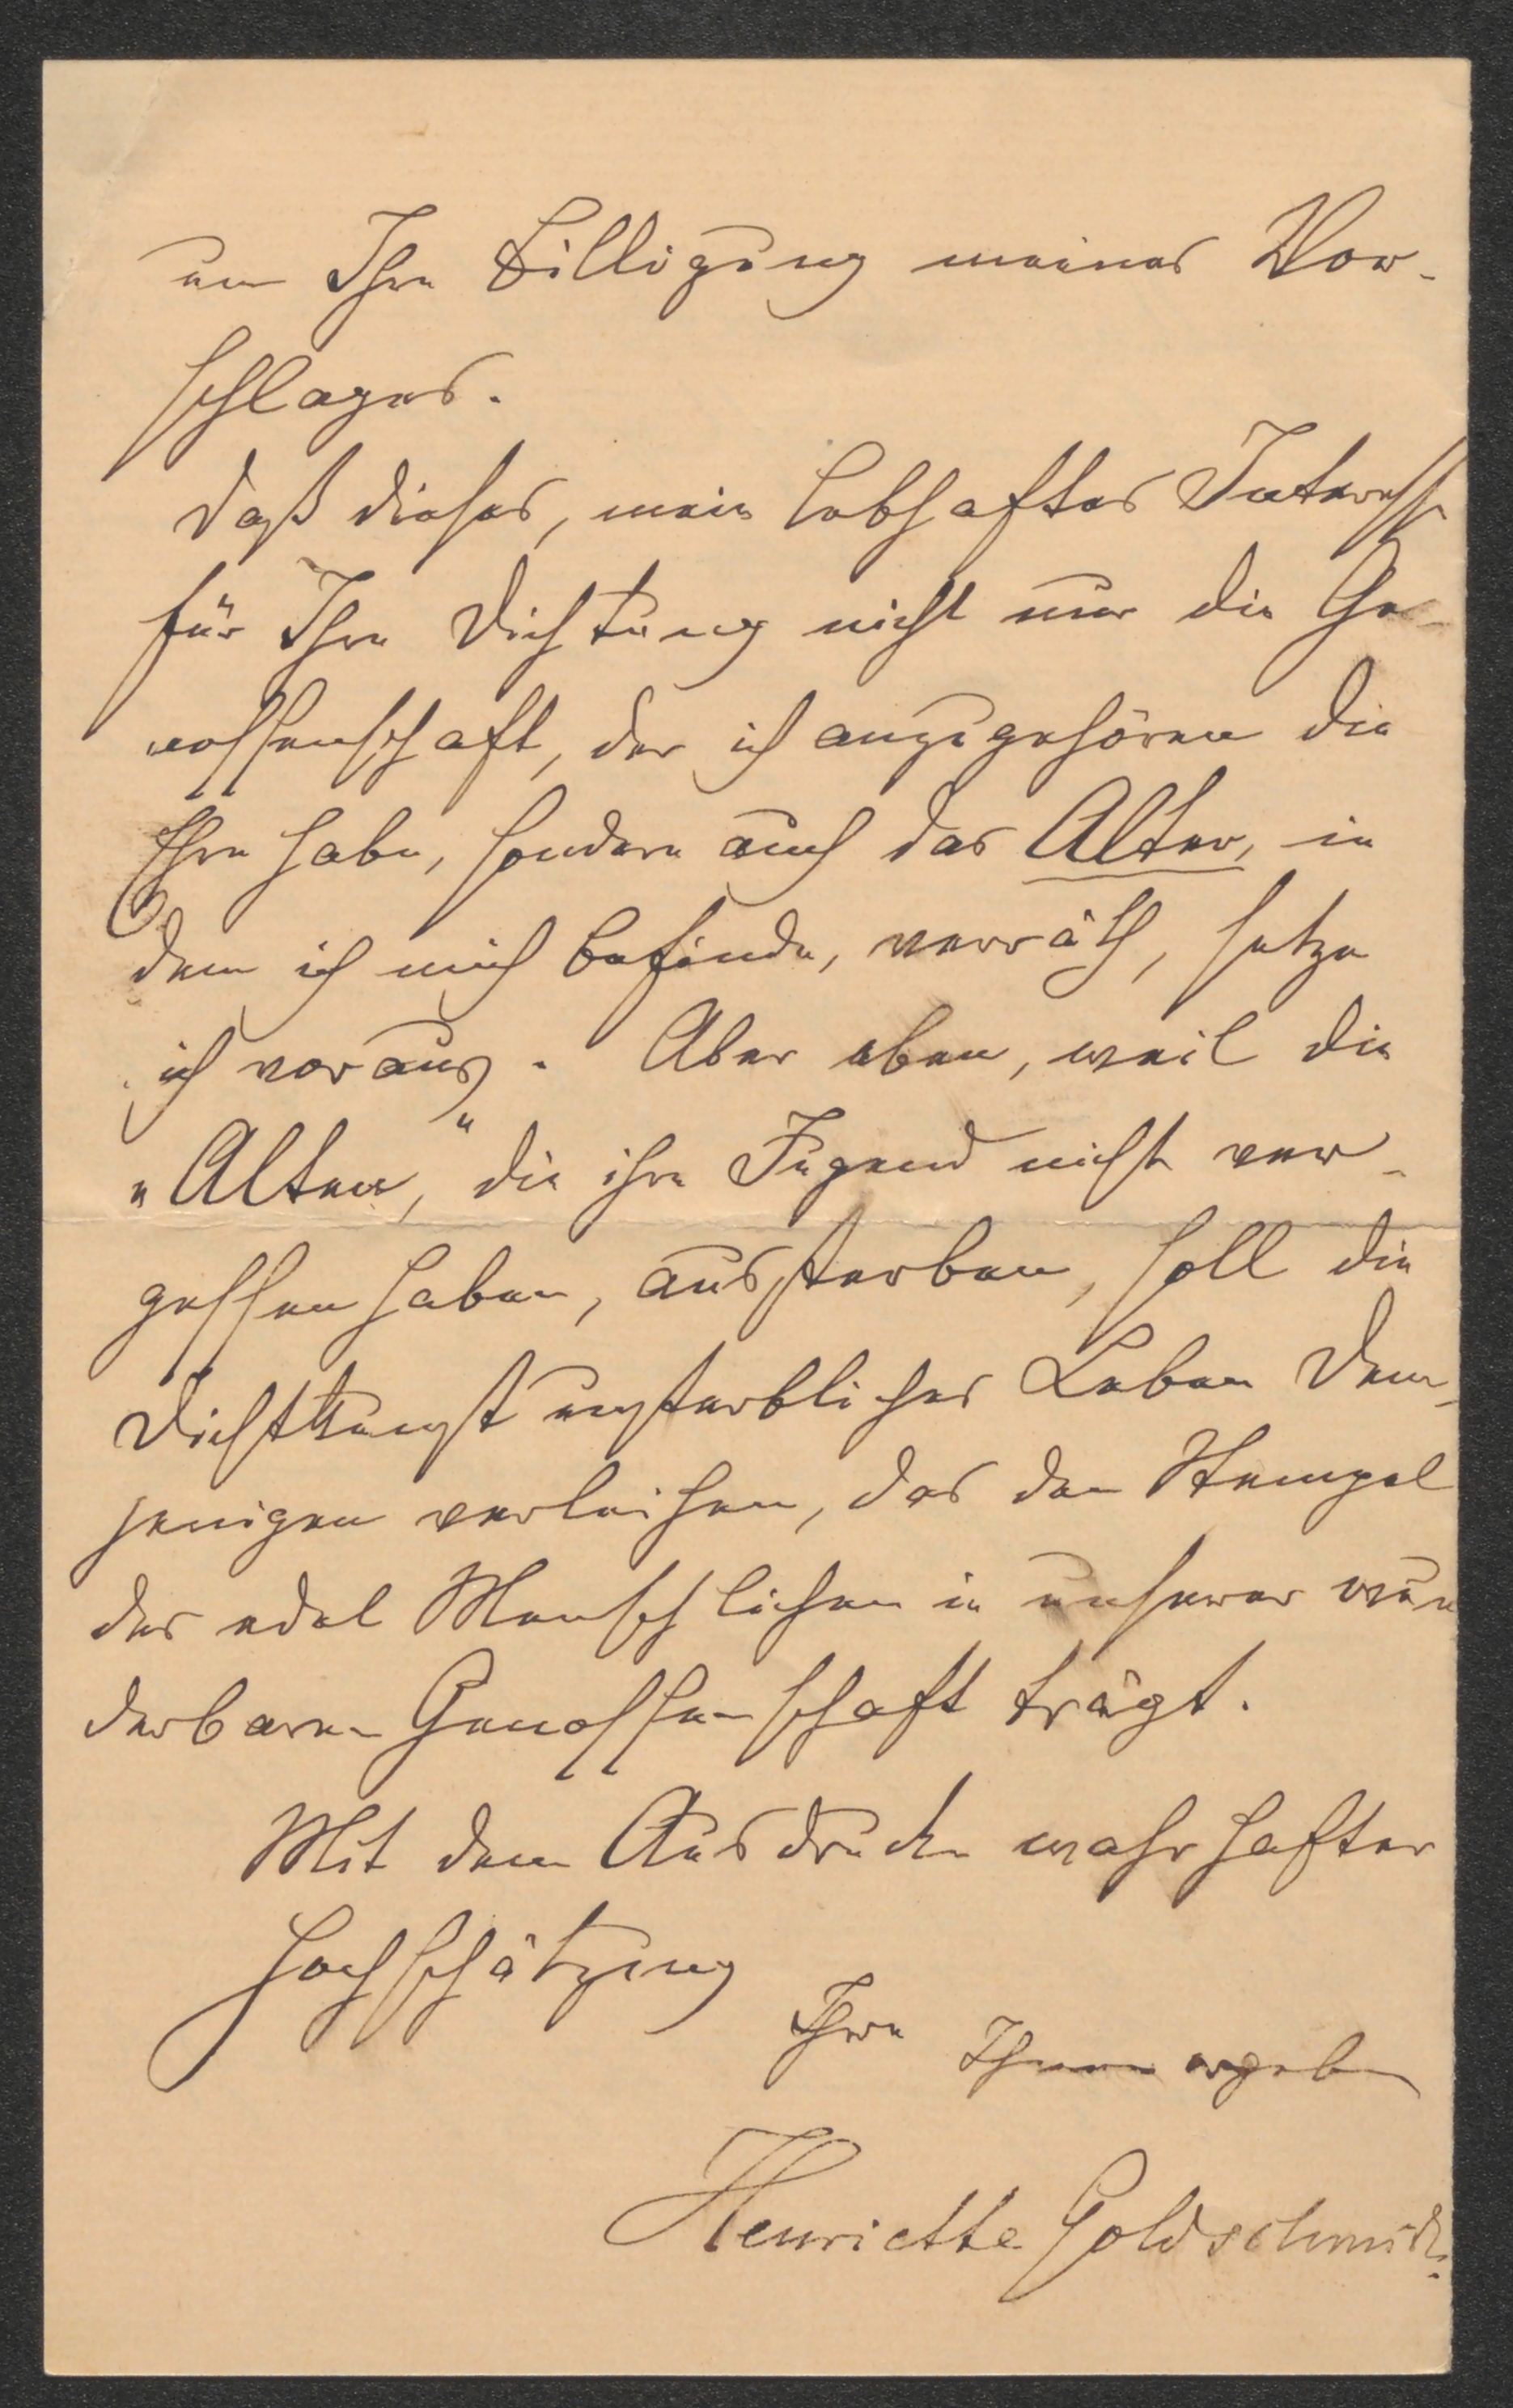 um Ihre Billigung meines Vor-
schlages.
Daß dieses, mein lebhaftes Interesse
für Ihre Dichtung nicht nur die Ge-
nossenschaft, der ich anzugehören die
Ehre habe, sondern auch das Alter, in
dem ich mich befinde, verräth, setze
ich voraus. Aber eben, weil die
"Alten", die ihre Jugend nicht ver-
gessen haben, aussterben, soll die
Dichtkunst unsterbliches Leben dem-
jenigen verleihen, das den Stempel
des edel Menschlichen in unserer wun
derbaren Genossenschaft trägt.
Mit dem Ausdrucke wahrhafter
Hochschätzung
Ihre Ihnen ergeben
Henriette Goldschmidt.